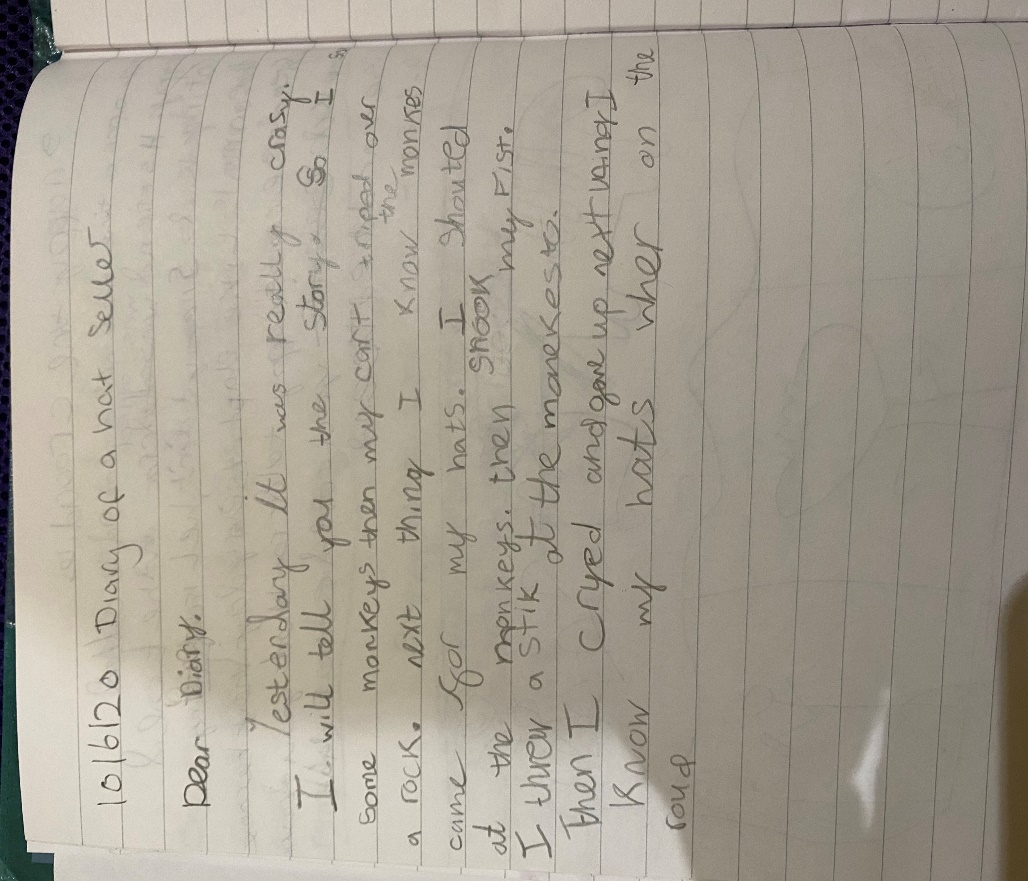 10/6/20 Diary of a hat seller
Dear Diary.
Yesterday it was really crasy.
I will tell you the story. So I s
some monkeys then my cart tripped over
a rock. next thing I know the monkes
came for my hats. I shouted
at the monkeys. then shook my Fist.
I threw a stik at the monekesto.
Then I cryed and gave up next thing I
know my hats wher on the
roud